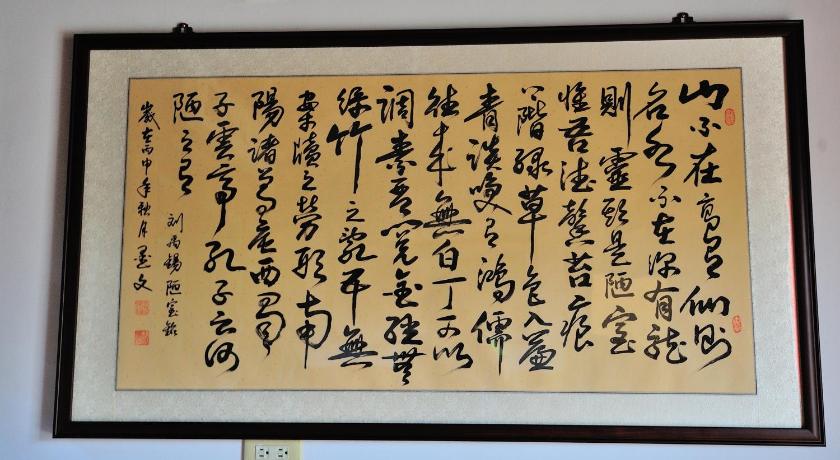 山不在高有仙則
名水不在深有龍
則靈斯是陋室
惟吾德馨苔痕
上階綠草色入簾
青談笑有鴻儒
往來無白丁可以
調素琴閱金經無
絲竹之亂耳無
案牘之勞形南
陽諸葛廬西蜀
子雲亭孔子云何
陋之有
刘禹錫陋室銘
歲在丙申年秋月墨文